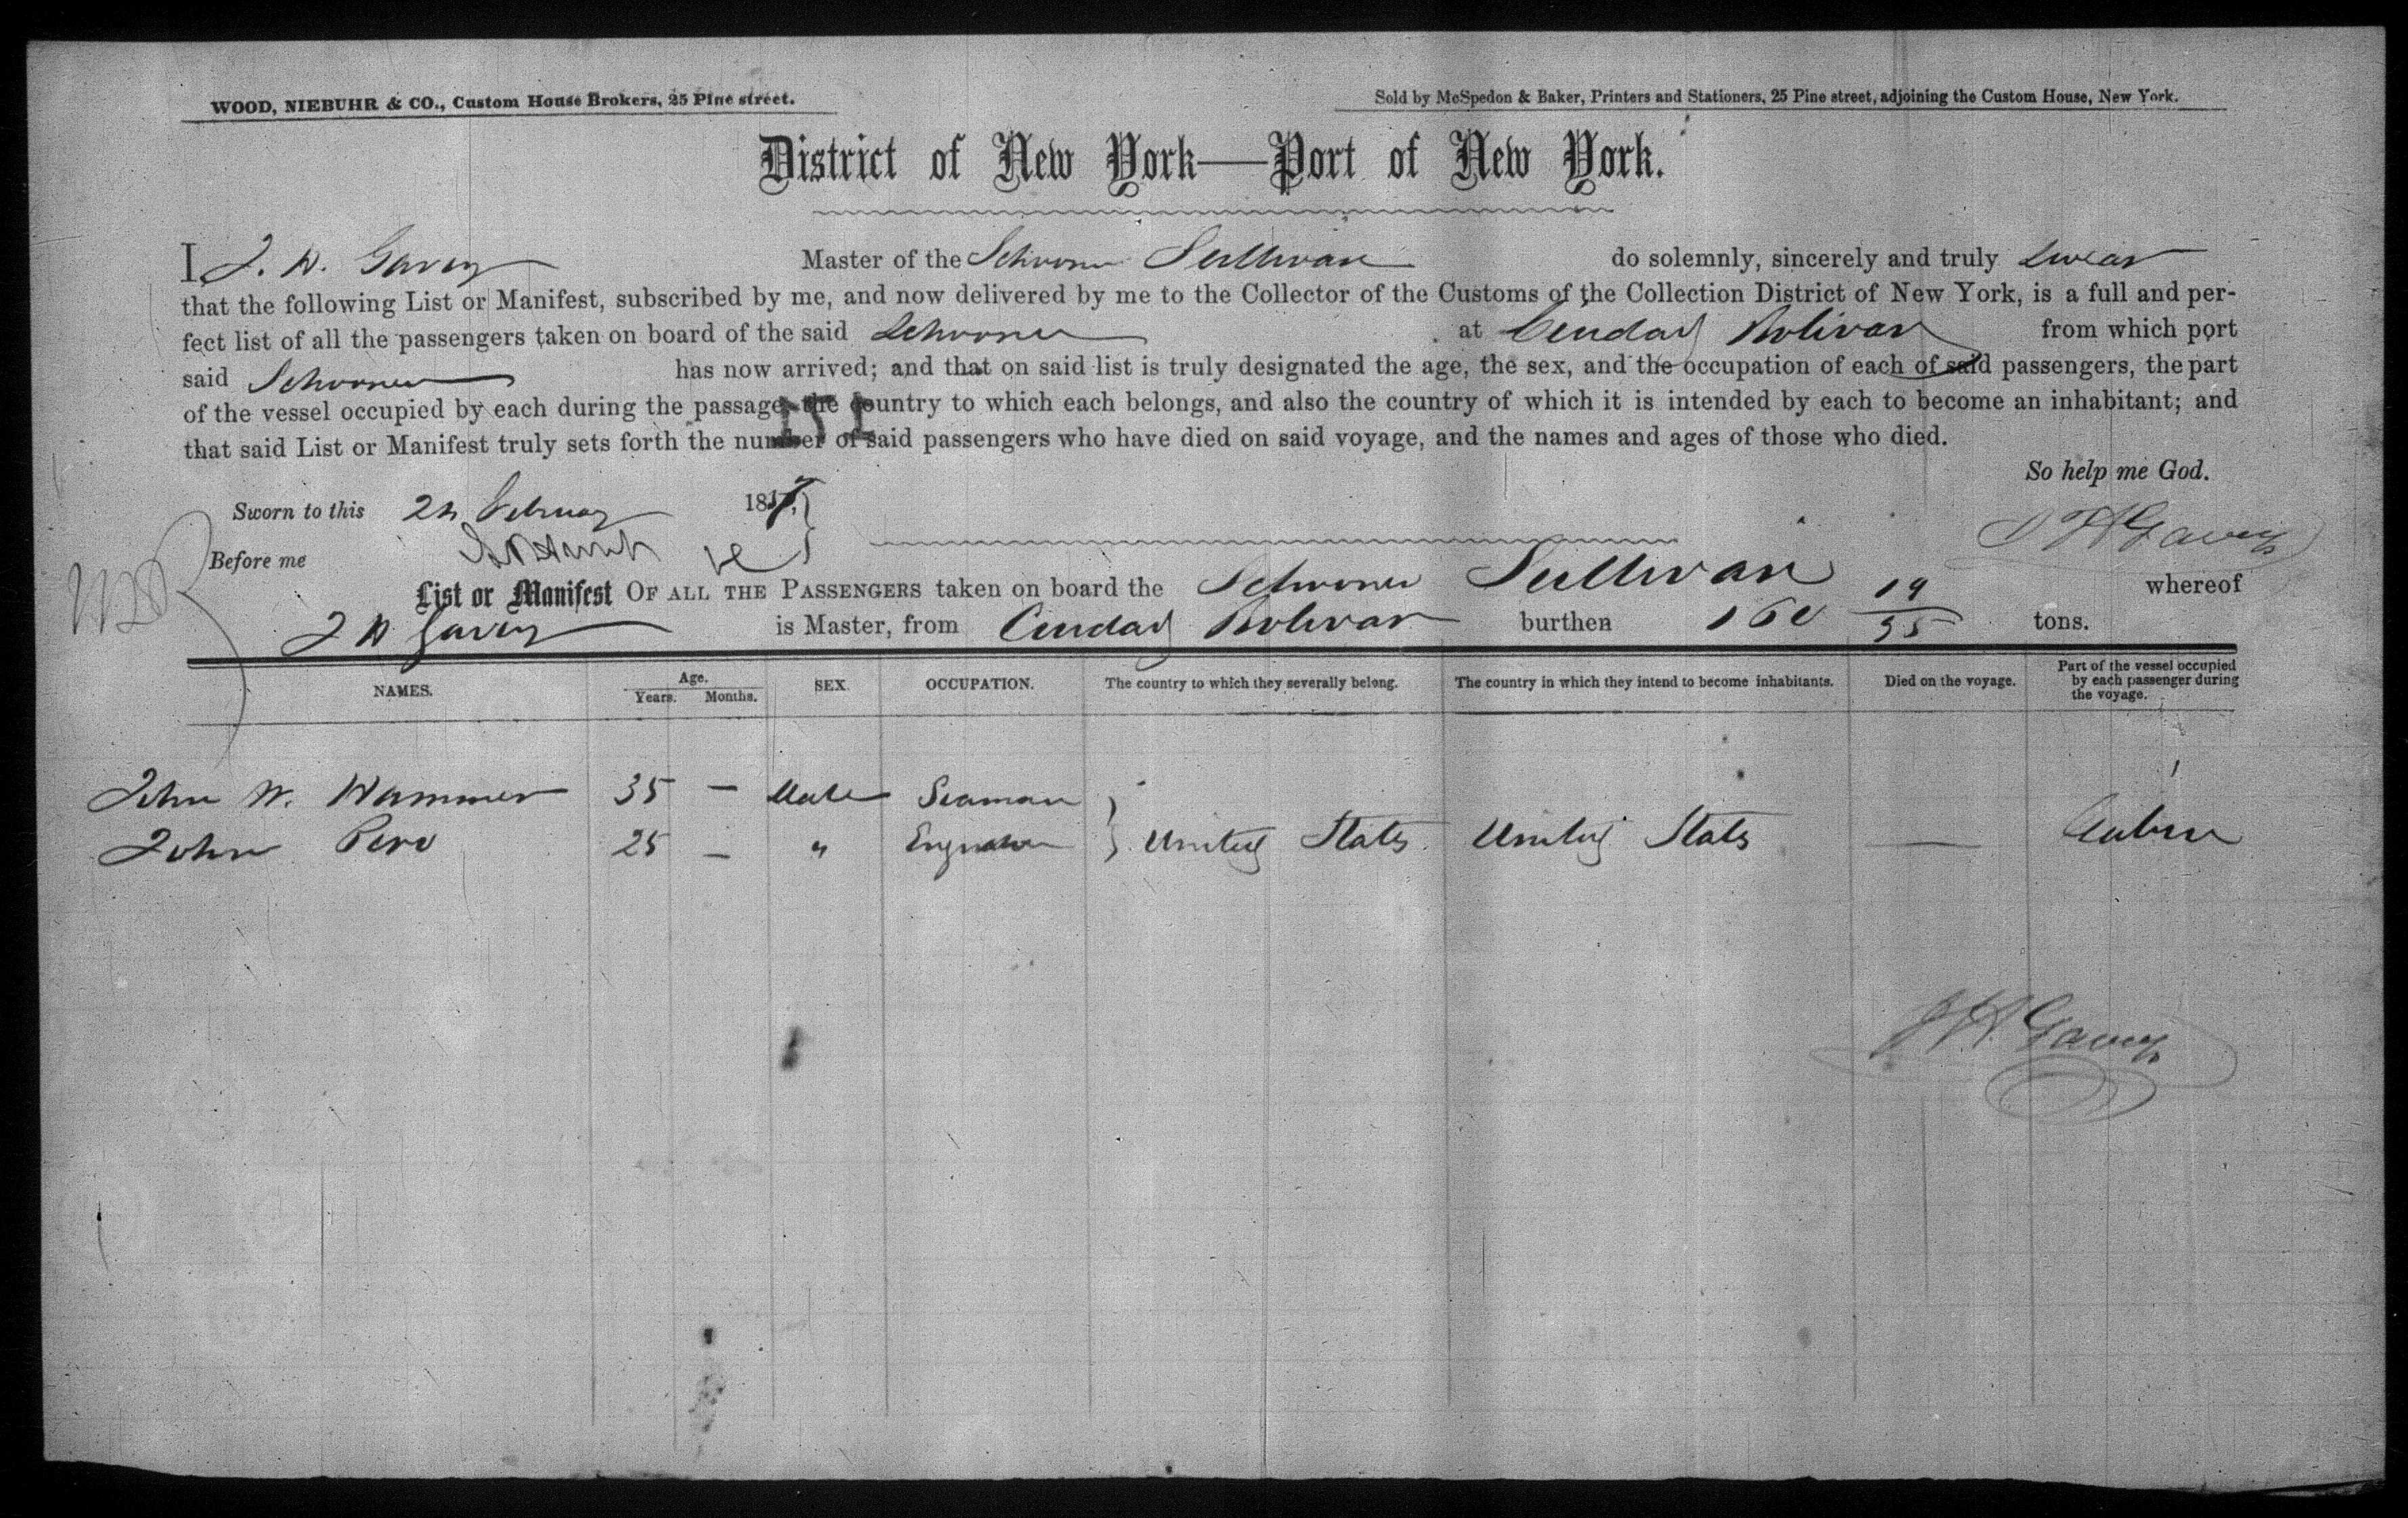 WOOD, NIEBUHR & CO., Custom House Brokers, 25 Pine street.
Sold by McSpedon & Baker, Printers and Stationers, 25 Pine street, adjoining the Custom House, New York.
District of New York—Port of New York.
I, J. H. Gavey Master of the Schooner Sullivan do solemnly, sincerely and truly swear
that the following List or Manifest, subscribed by me, and now delivered by me to the Collector of the Customs of the Collection District of New York, is a full and per-
fect list of all the passengers taken on board of the said Schooner at Ciudad Bolivar from which port
said Schooner has now arrived; and that on said list is truly designated the age, the sex, and the occupation of each of said passengers, the part
of the vessel occupied by each during the passage, the country to which each belongs, and also the country of which it is intended by each to become an inhabitant; and
that said List or Manifest truly sets forth the number of said passengers who have died on said voyage, and the names and ages of those who died.
151
So help me God.
Sworn to this February 18
J H Gavey
Before me
List or Manifest OF ALL THE PASSENGERS taken on board the Schooner Sullivan whereof
J H Gavey is Master, from Ciudad Bolivar burthen 160 19/95 tons.
NAMES. Age. Years. Months. SEX. OCCUPATION. The country to which they severally belong. The country in which they intend to become inhabitants. Died on the voyage. Part of the vessel occupied by each passenger during the voyage.
John W. Hammer 35 — Male Seaman
John Pero 25 — " Engineer } United States United States — Cabin
J H Gavey